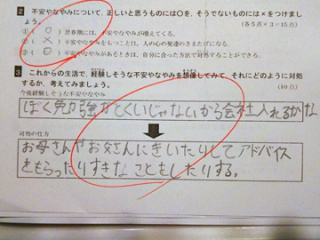 2 不安やなやみについて，正しいと思うものには○を，そうでないものには×をつけましょう。
(各5点×3=15点)
① (○) 思春期には，不安やなやみが増えてくる。
② (×) 不安やなやみをもつことは，人の心の発達のさまたげになる。
③ (○) 不安やなやみがあるときは，自分に合った方法で対処することができる。
3 これからの生活で，経験しそうな不安やなやみを想像してみて，それにどのように対処するか，考えてみましょう。
(10点)
今後経験しそうな不安やなやみ
ぼく勉強がとくいじゃないから会社入れるかな
対処の仕方
お母さんやお父さんにきいたりしてアドバイス
をもらったりすきなことをしたりする。